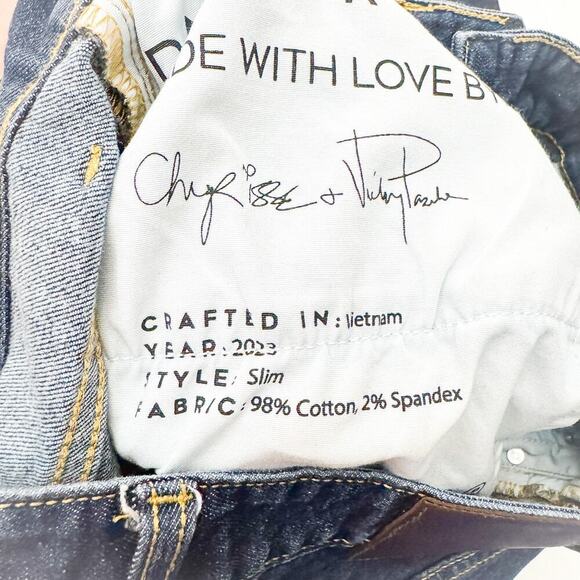 DE WITH LOVE BY
CRAFTED IN: Vietnam
YEAR: 2023
STYLE: Slim
FABRIC: 98% Cotton, 2% Spandex